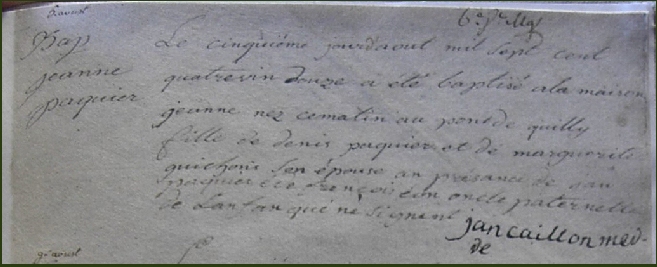 Bap
jeanne
paquier
Le cinquiéme jourdaout mil sept cent
quatrevin douze a été baptisé ala maison
jeanne nez cematin au pont de quilly
fille de denis paquier et de marguerite
guichons son épouse an présance de jan
paquier et de françois son oncle paternelle
de lanfan qui ne signent
jan caillon med
de